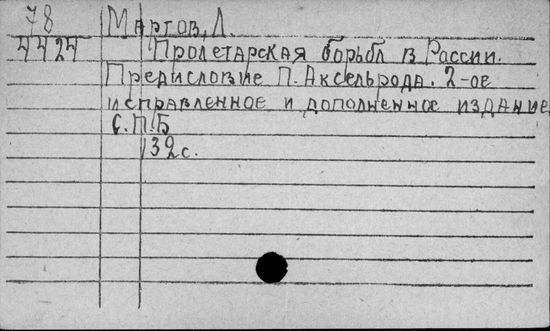 78
4424
Мартов, Л.
Пролетарская борьба в России.
Предисловие П. Аксельрода. 2-ое
исправленное и дополненное издание
С.П.Б
132с.